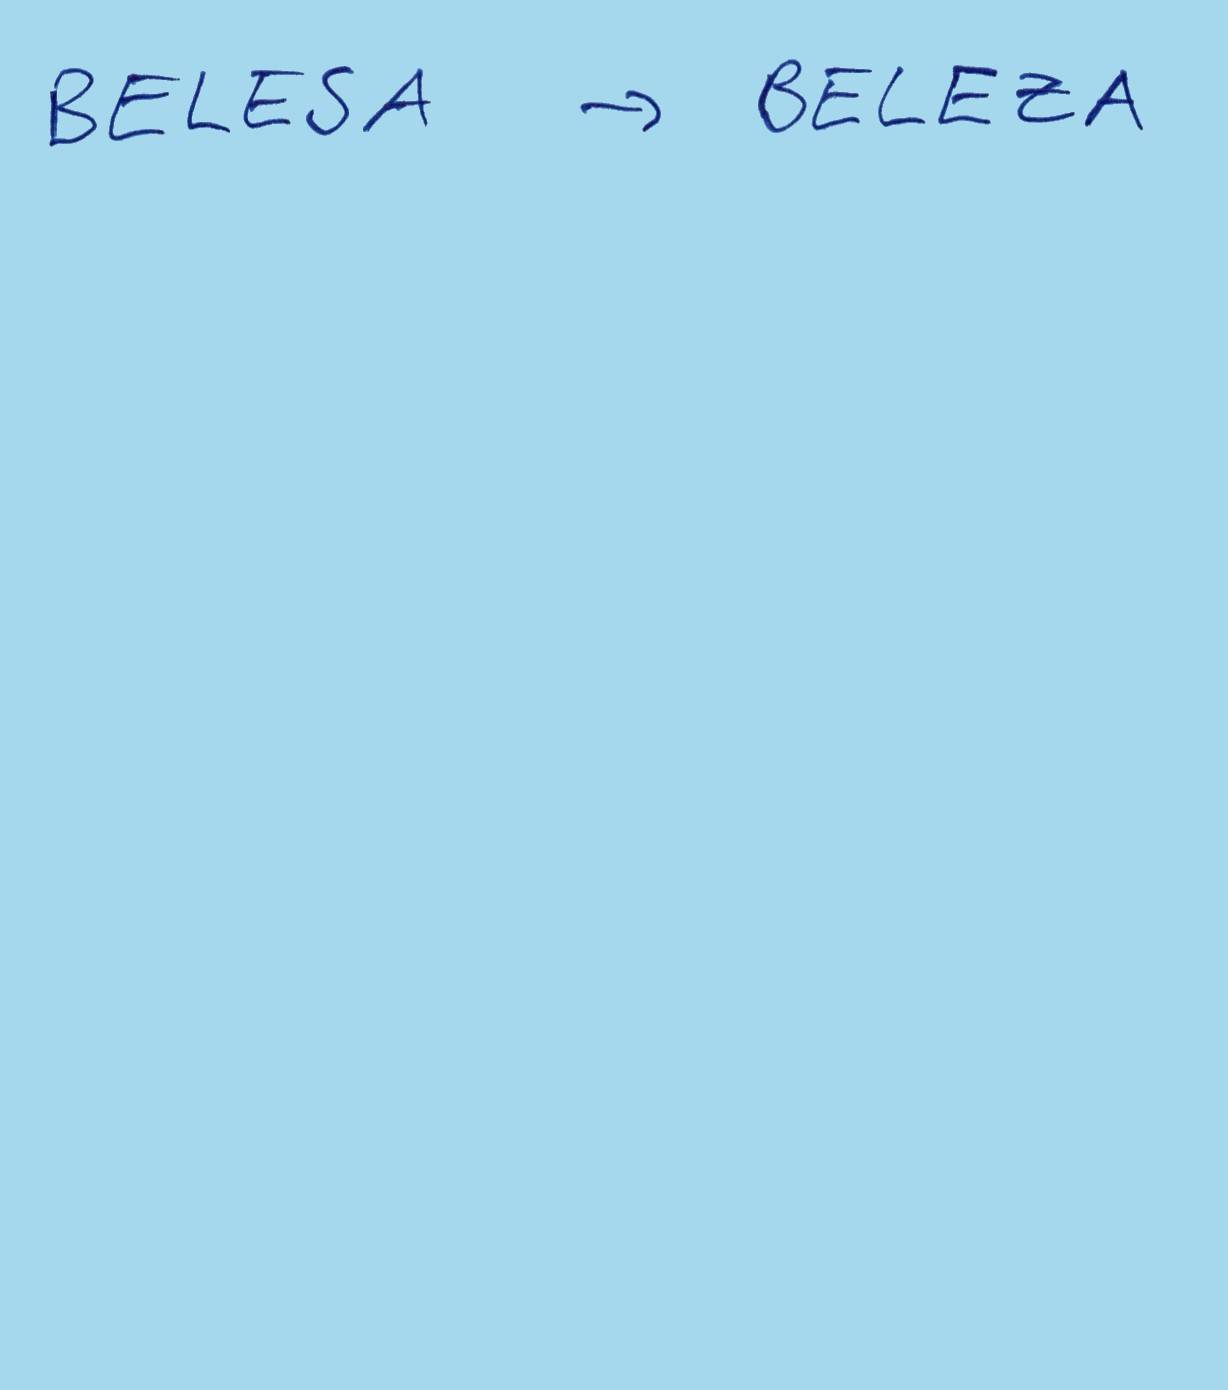 BELESA → BELEZA